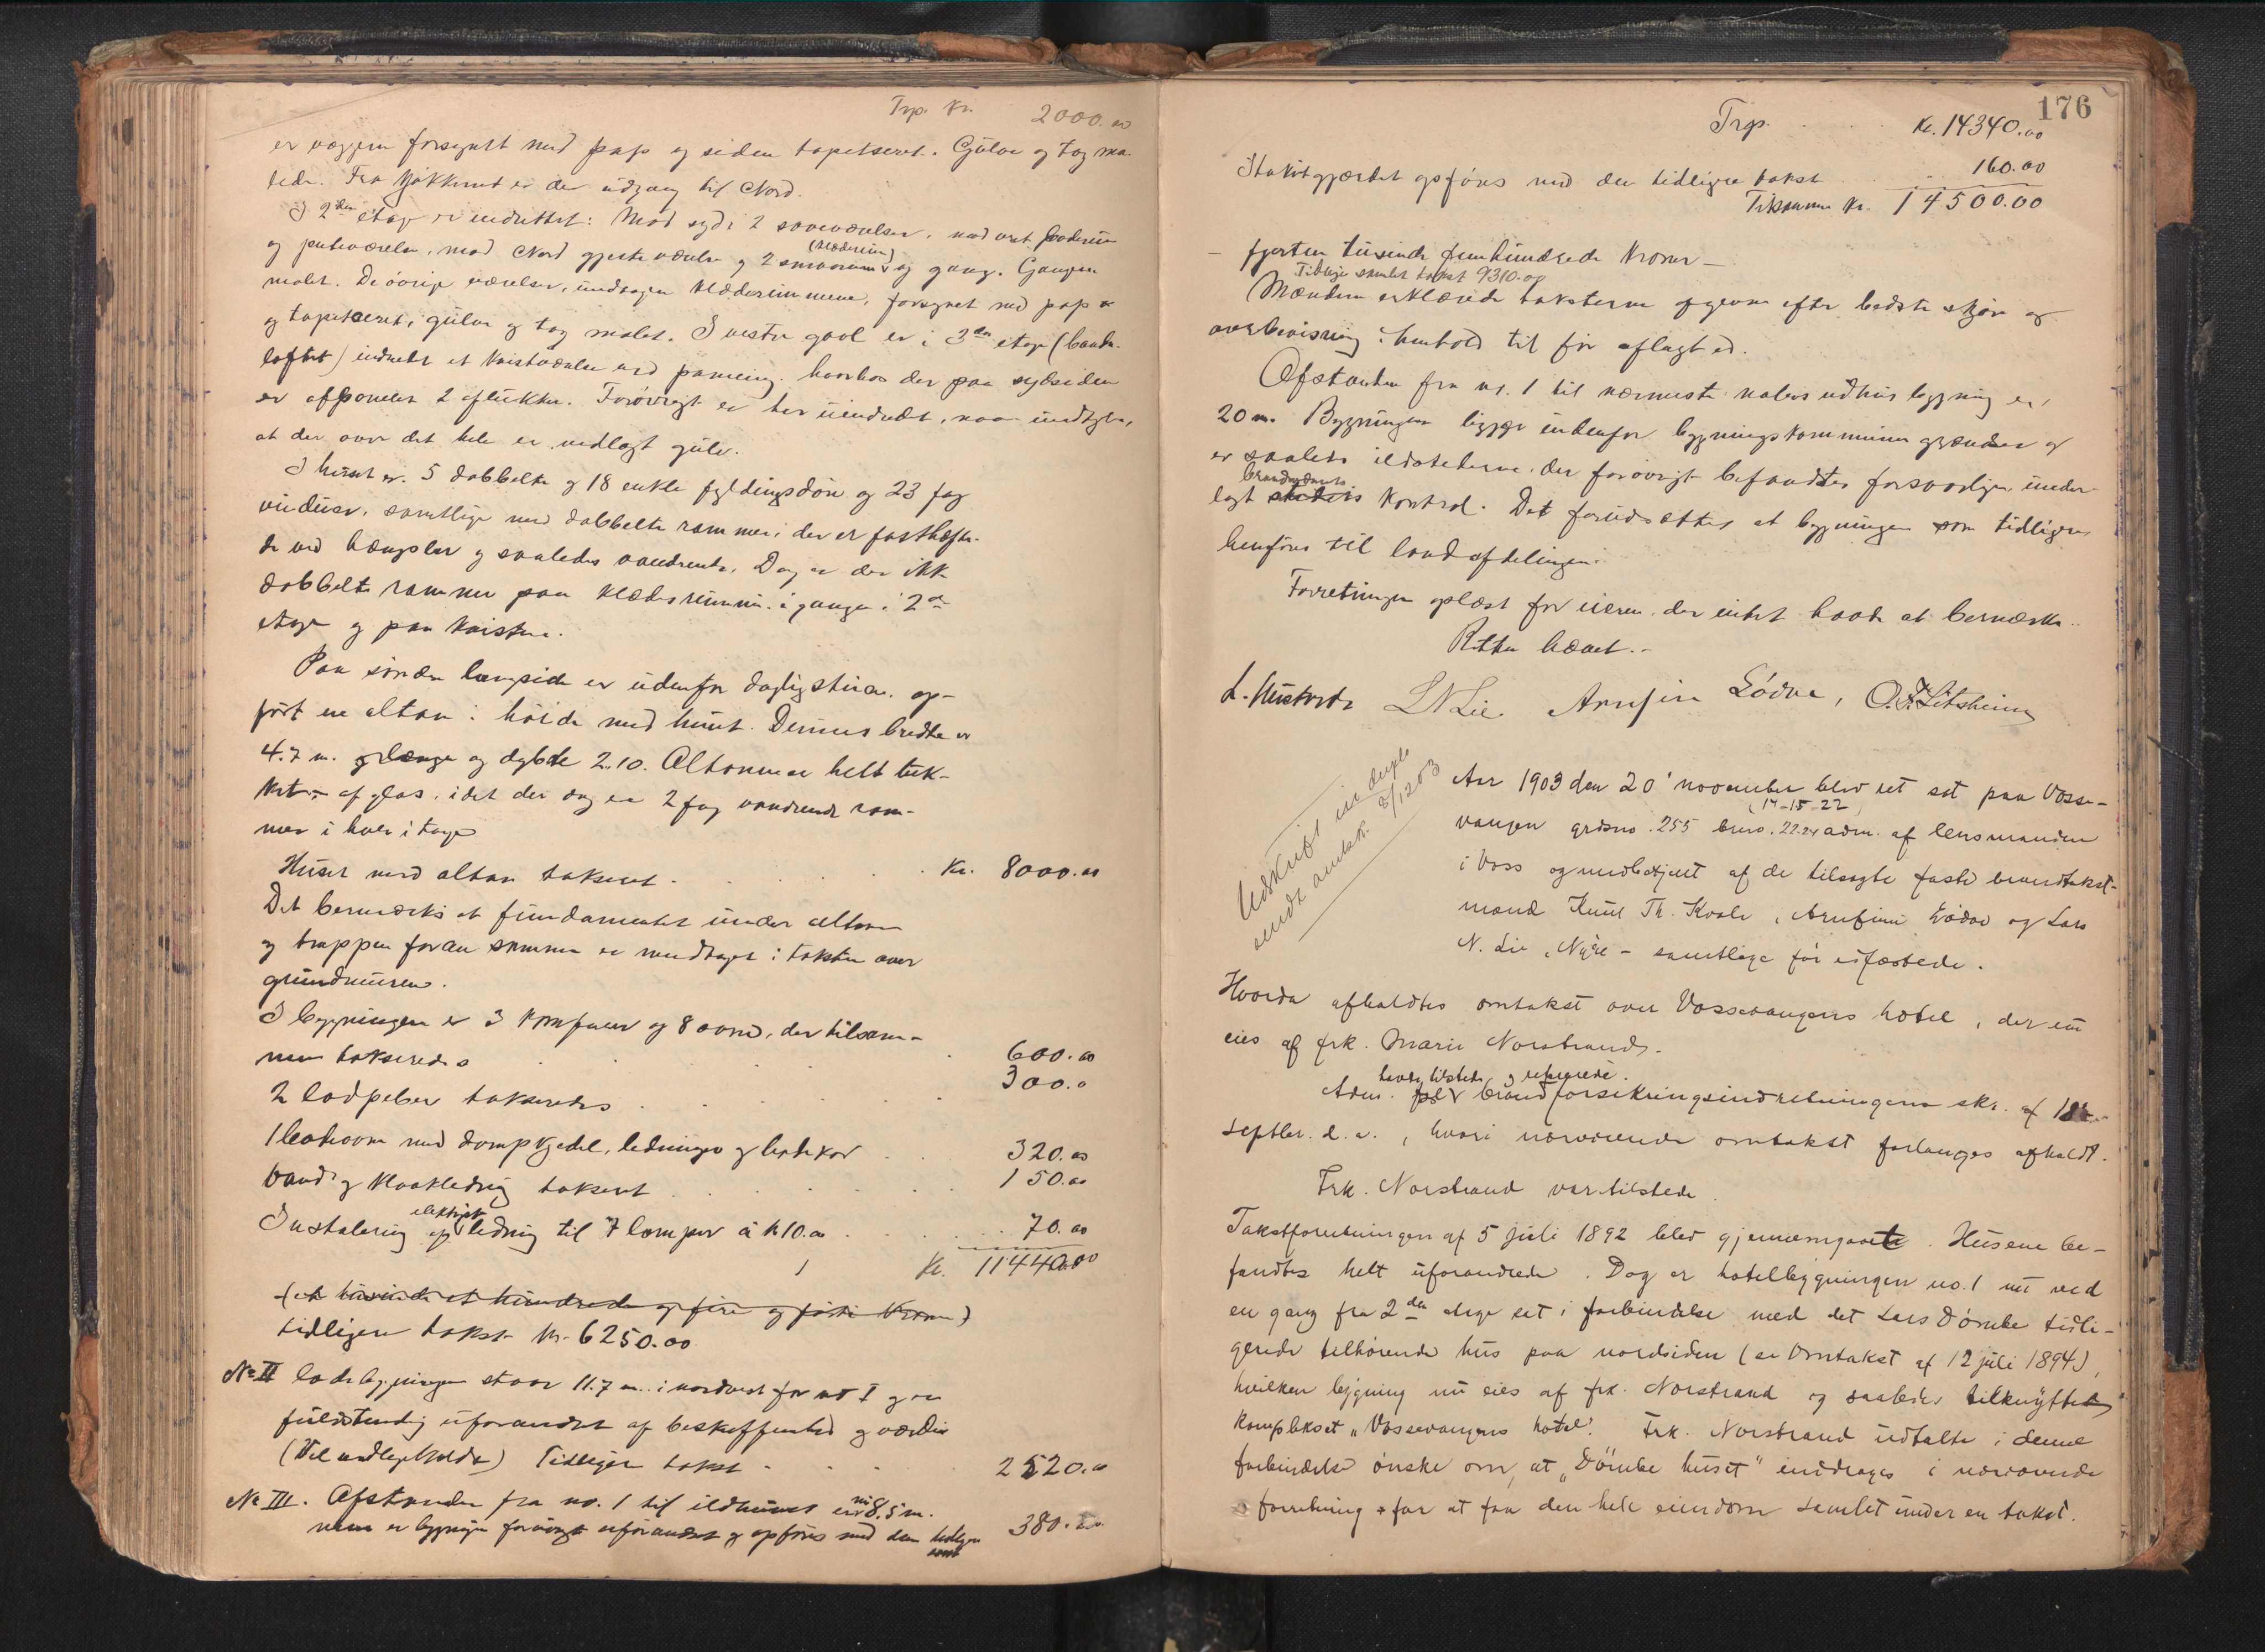 Trp. Kr. 2000.00
er væggene forsynet med pap og siden tapetseret. Gulve og tag ma-
lede. Fra kjøkkenet er der udgang til Nord.
I 2den etage er indrettet: Mod syd: 2 soveværelser, mod vest baderum
og pigeværelse, mod Nord gjesteværelse og 2 smaarum (klæderum) og gang. Gangen
malet. De øvrige værelser, undtagen klæderummene, forsynet med pap
og tapetseret, gulve og tag malet. I vestre gavl er i 3die etage (
loftet) indredet et kvistværelse med paneling. hvorhos der paa sydsiden
er afpanelet 2 aflukker. Forøvrigt er her uindredet, naar undtages,
at der over det hele er nedlagt gulv.
I huset er 5 dobbelte og 18 enkle fyldingsdøre og 23 fag
vinduer, samtlige med dobbelte rammer, der er fasthefte-
de ved hængsler og saaledes vandrende. Dog er der ikke
dobbelte rammer paa klæderummene i gangen i 2den
etage og paa kvisten.
Paa søndre langside er udenfor dagligstuen op-
ført en altan i høide med huset. Dennes bredde er
4.7 m. og dybde 2.10. Altanen er helt luk-
ket af glas, idet der dog er 2 fag vandrende ram-
mer i hver etage
Huset med altan takseret Kr. 8000.00
Det bemærkes at fundamentet under altanen
og trappen foran samme er medtaget i taksten over
grundmuren.
I bygningen er 3 komfurer og 8 ovne, der tilsam-
men takseredes 600.00
2 ladpiber takseredes 300.00
1 badeovn med dampkjedel, ledninger og badekar 320.00
Vand og kloakledning takseret 150.00
Instalering af elektrisk ledning til 7 lamper á kr 10.00 70.00
Kr. 11440.00
(et tusinde et hundrede og fire og førti Kroner)
tidligere takst kr. 6250.00
No II ladebygningen staar 11.7 m. i nordvest for no I og er
fuldstændig uforandret af beskaffenhed og værdi
(Vel vedligeholdt) Tidligere takst 2520.00
No III. Afstanden fra no. 1 til ildhuset er nu 8.5 m.
men er bygningen forøvrigt uforandret og opføres med den tidligere
takst 380.00
176
Trp. Kr. 14340.00
Stakitgjærdet opføres med den tidligere takst 160.00
Tilsammen Kr. 14500.00
– fjorten tusinde femhundrede Kroner –
Tidligere samlet takst 9310.00
Mændene erklærede taksterne afgivne efter bedste skjøn og
overbevisning i henhold til før aflagt ed.
Afstanden fra no. 1 til nærmeste nabos udhusbygning er
20 m. Bygningerne ligger indenfor bygningskommunens grændser og
er saaledes ildstederne, der forøvrigt befandtes forsvarlige, under-
lagt brandvæsenets kontrol. Det forudsættes at bygningen som tidligere
henføres til landafdelingen.
Forretningen oplæst for eieren, der intet havde at bemærke.
Retten hævet. –
L. N Lie Arnfin Lødve, O. Litsheim
Udskrift in duplo
sendt amtsk. 8/12 03
Aar 1903 den 20' november blev ret sat paa Vosse-
(14-15-22)
vangen grdsno. 255 brno. 22.24 adm. af lensmanden
i Voss og medbetjent af de tilsagte faste brandtakst-
mænd Knut Th. Kvale, Arnfinn Lødve og Lars
N. Lie, Nyre – samtlige før eifæstede.
Hvorda afholdtes omtakst over Vossevangens hotel, der nu
eies af frk. Marie Norstrand.
havde tilstede og refererede
Adm. brandforsikringsindretningens skr. af 18
septbr. d. a., hvori nærværende omtakst forlanges afholdt.
Frk. Norstrand var tilstede.
Takstforretningen af 5 juli 1892 blev gjennemgaaet. Husene be-
fandtes helt uforandrede. Dog er hotelbygningen no. 1 nu ved
en gang fra 2den etage sat i forbindelse med det Lars Dømbe tidli-
gerede tilhørende hus paa nordsiden (se Omtakst af 12 juli 1894),
hvilken bygning nu eies af frk. Norstrand og saaledes tilknyttet
komplekset „Vossevangens hotel". Frk. Norstrand udtalte i denne
forbindelse ønske om, at „Dømbe huset" inddrages i nærværende
forretning for at faa den hele eiendom samlet under en takst.